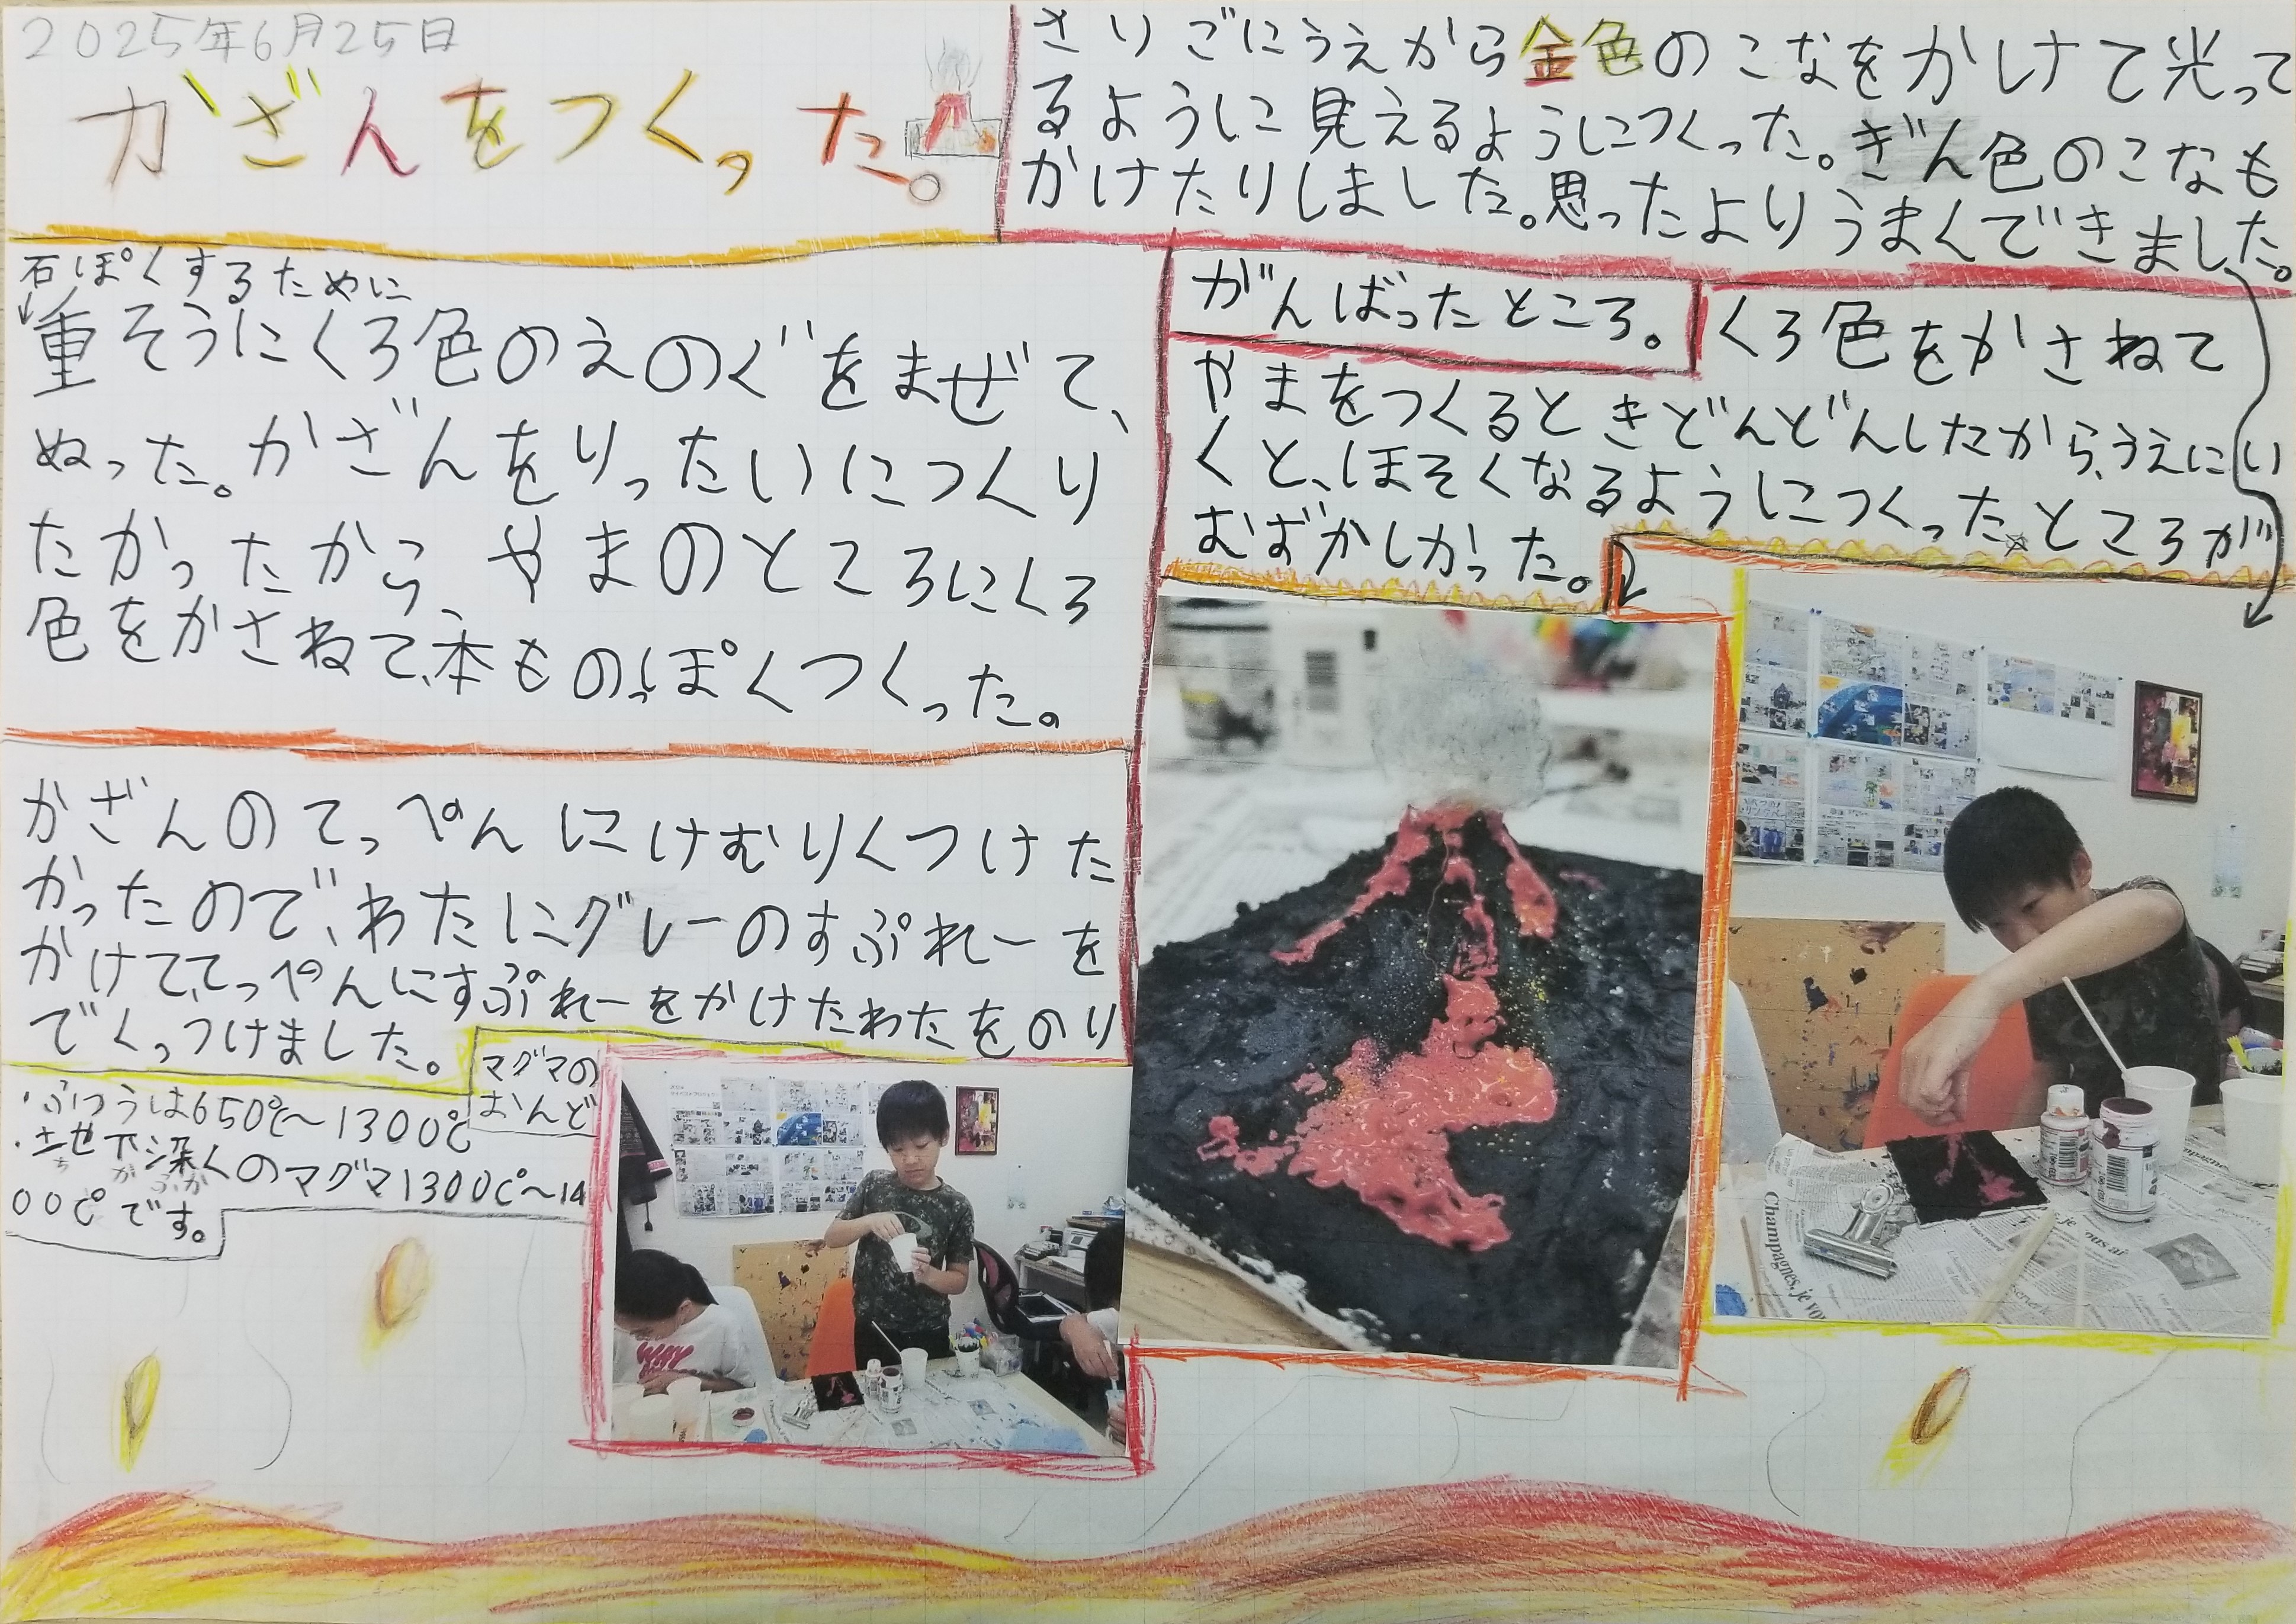 2025年6月25日
かざんをつくった。
石ぽくするために
重そうにくろ色のえのぐをまぜて、
ぬった。かざんをりったいにつくり
たかったから、やまのところにくろ
色をかさねて、本ものっぽくつくった。
かざんのてっぺんにけむりくつけた
かったので、わたにグレーのすぷれーを
かけて、てっぺんにすぷれーをかけたわたをのり
でくっつけました。
マグマの
おんど
・ふつうは650℃～1300℃
・地下深くのマグマ1300℃～14
00℃です。
さいごにうえから金色のこなをかけて光って
るように見えるようにつくった。ぎん色のこなも
かけたりしました。思ったよりうまくできました。
がんばったところ。
くろ色をかさねて
やまをつくるときどんどんしたから、うえにい
くと、ほそくなるようにつくったところが
むずかしかった。
Champagnes, je vo
WHY